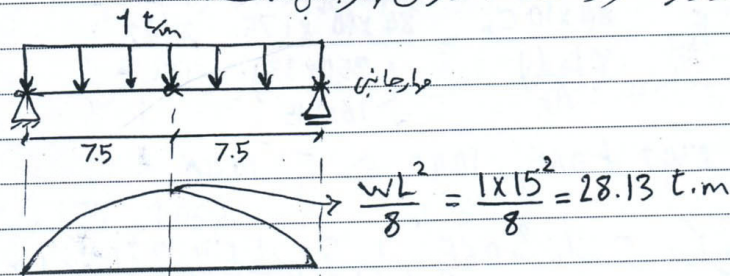 1 t/m
مهار جانبی
7.5 7.5
WL²/8 = 1×15²/8 = 28.13 t.m